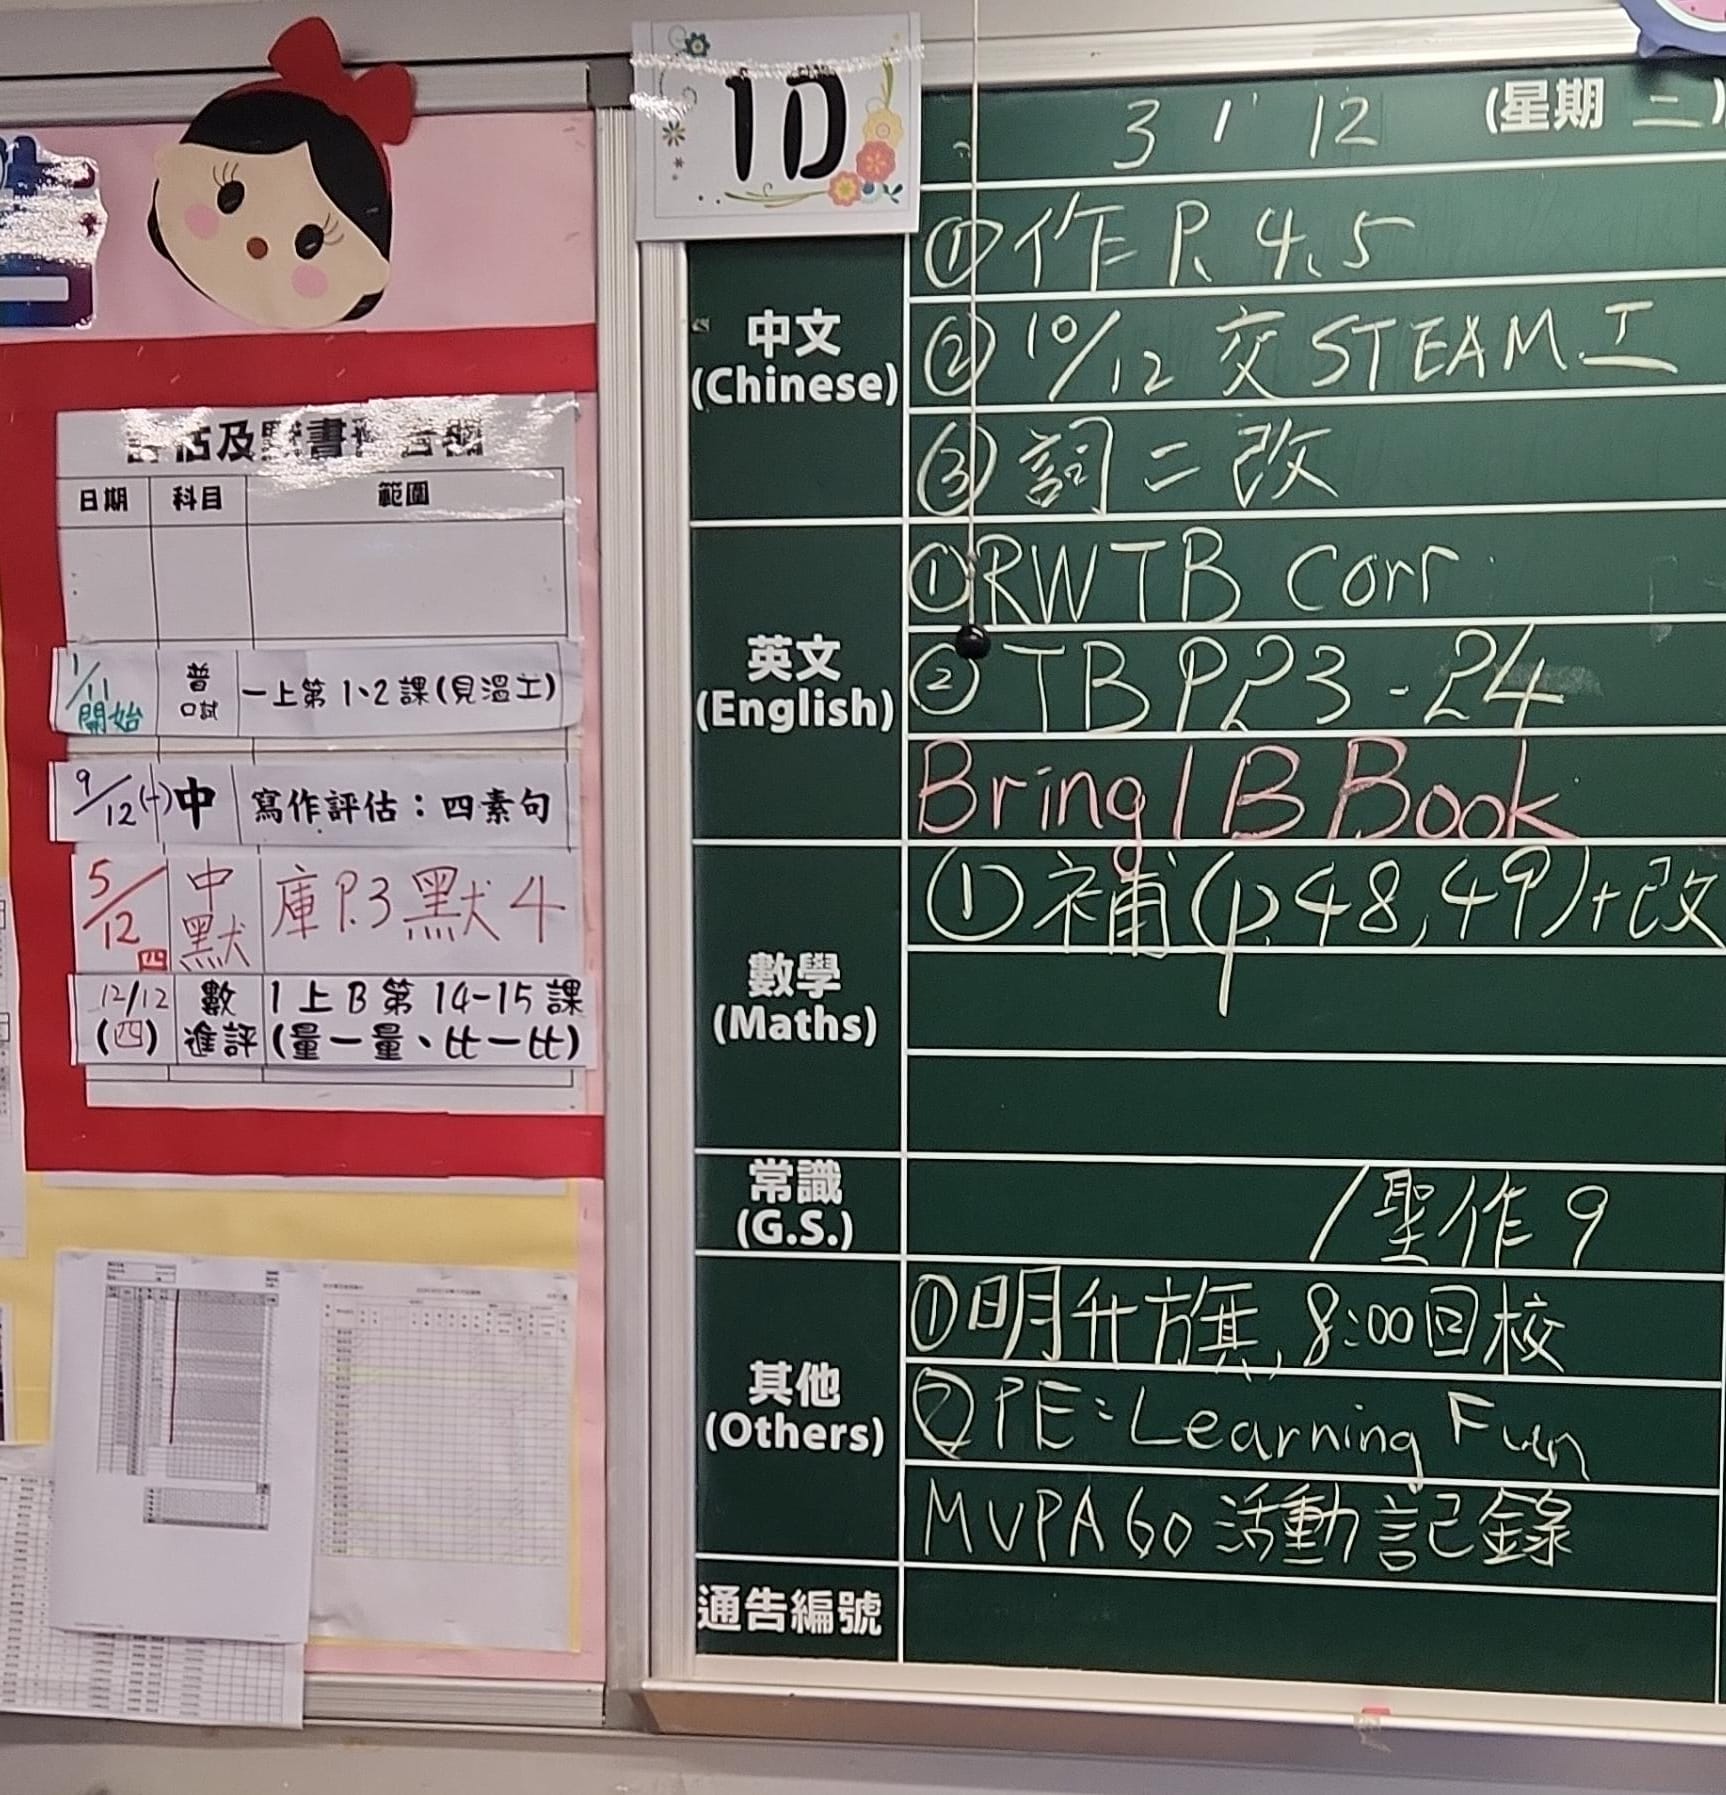 日期 科目 範圍
1/11 開始 普 口試 一上第1、2課(見溫工)
9/12(一) 中 寫作評估：四素句
5/12 四 中 默 庫P.3 默4
12/12 (四) 數 進評 1上B第14-15課
(量一量、比一比)
1D
3 / 12 (星期 二)
中文
(Chinese)
①作 P. 4、5
②10/12 交 STEAM.工
③詞二改
英文
(English)
①RWTB Corr
②TB P.23 - 24
Bring 1B Book
數學
(Maths)
①補(p.48,49)+改
常識
(G.S.)
/聖作9
其他
(Others)
①明升旗,8:00回校
②PE: Learning Fun
MVPA60活動記錄
通告編號